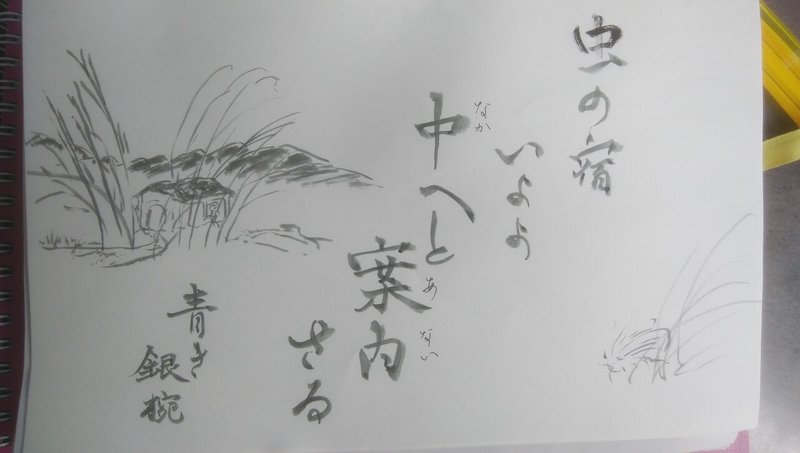 虫の宿
いよよ
中へと
なか
案内
あない
さる
青き
銀椀